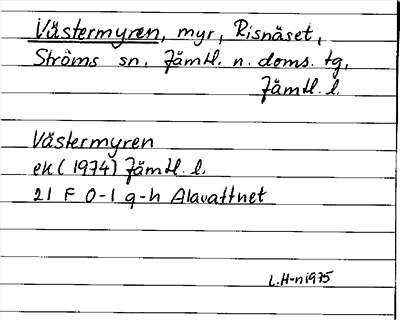 Västermyren, myr, Risnäset,
Ströms sn. Jämtl. n. doms. tg,
Jämtl. l.
Västermyren
ek (1974) Jämtl. l.
21 F 0-1 g-h Alavattnet
L. H-n 1975